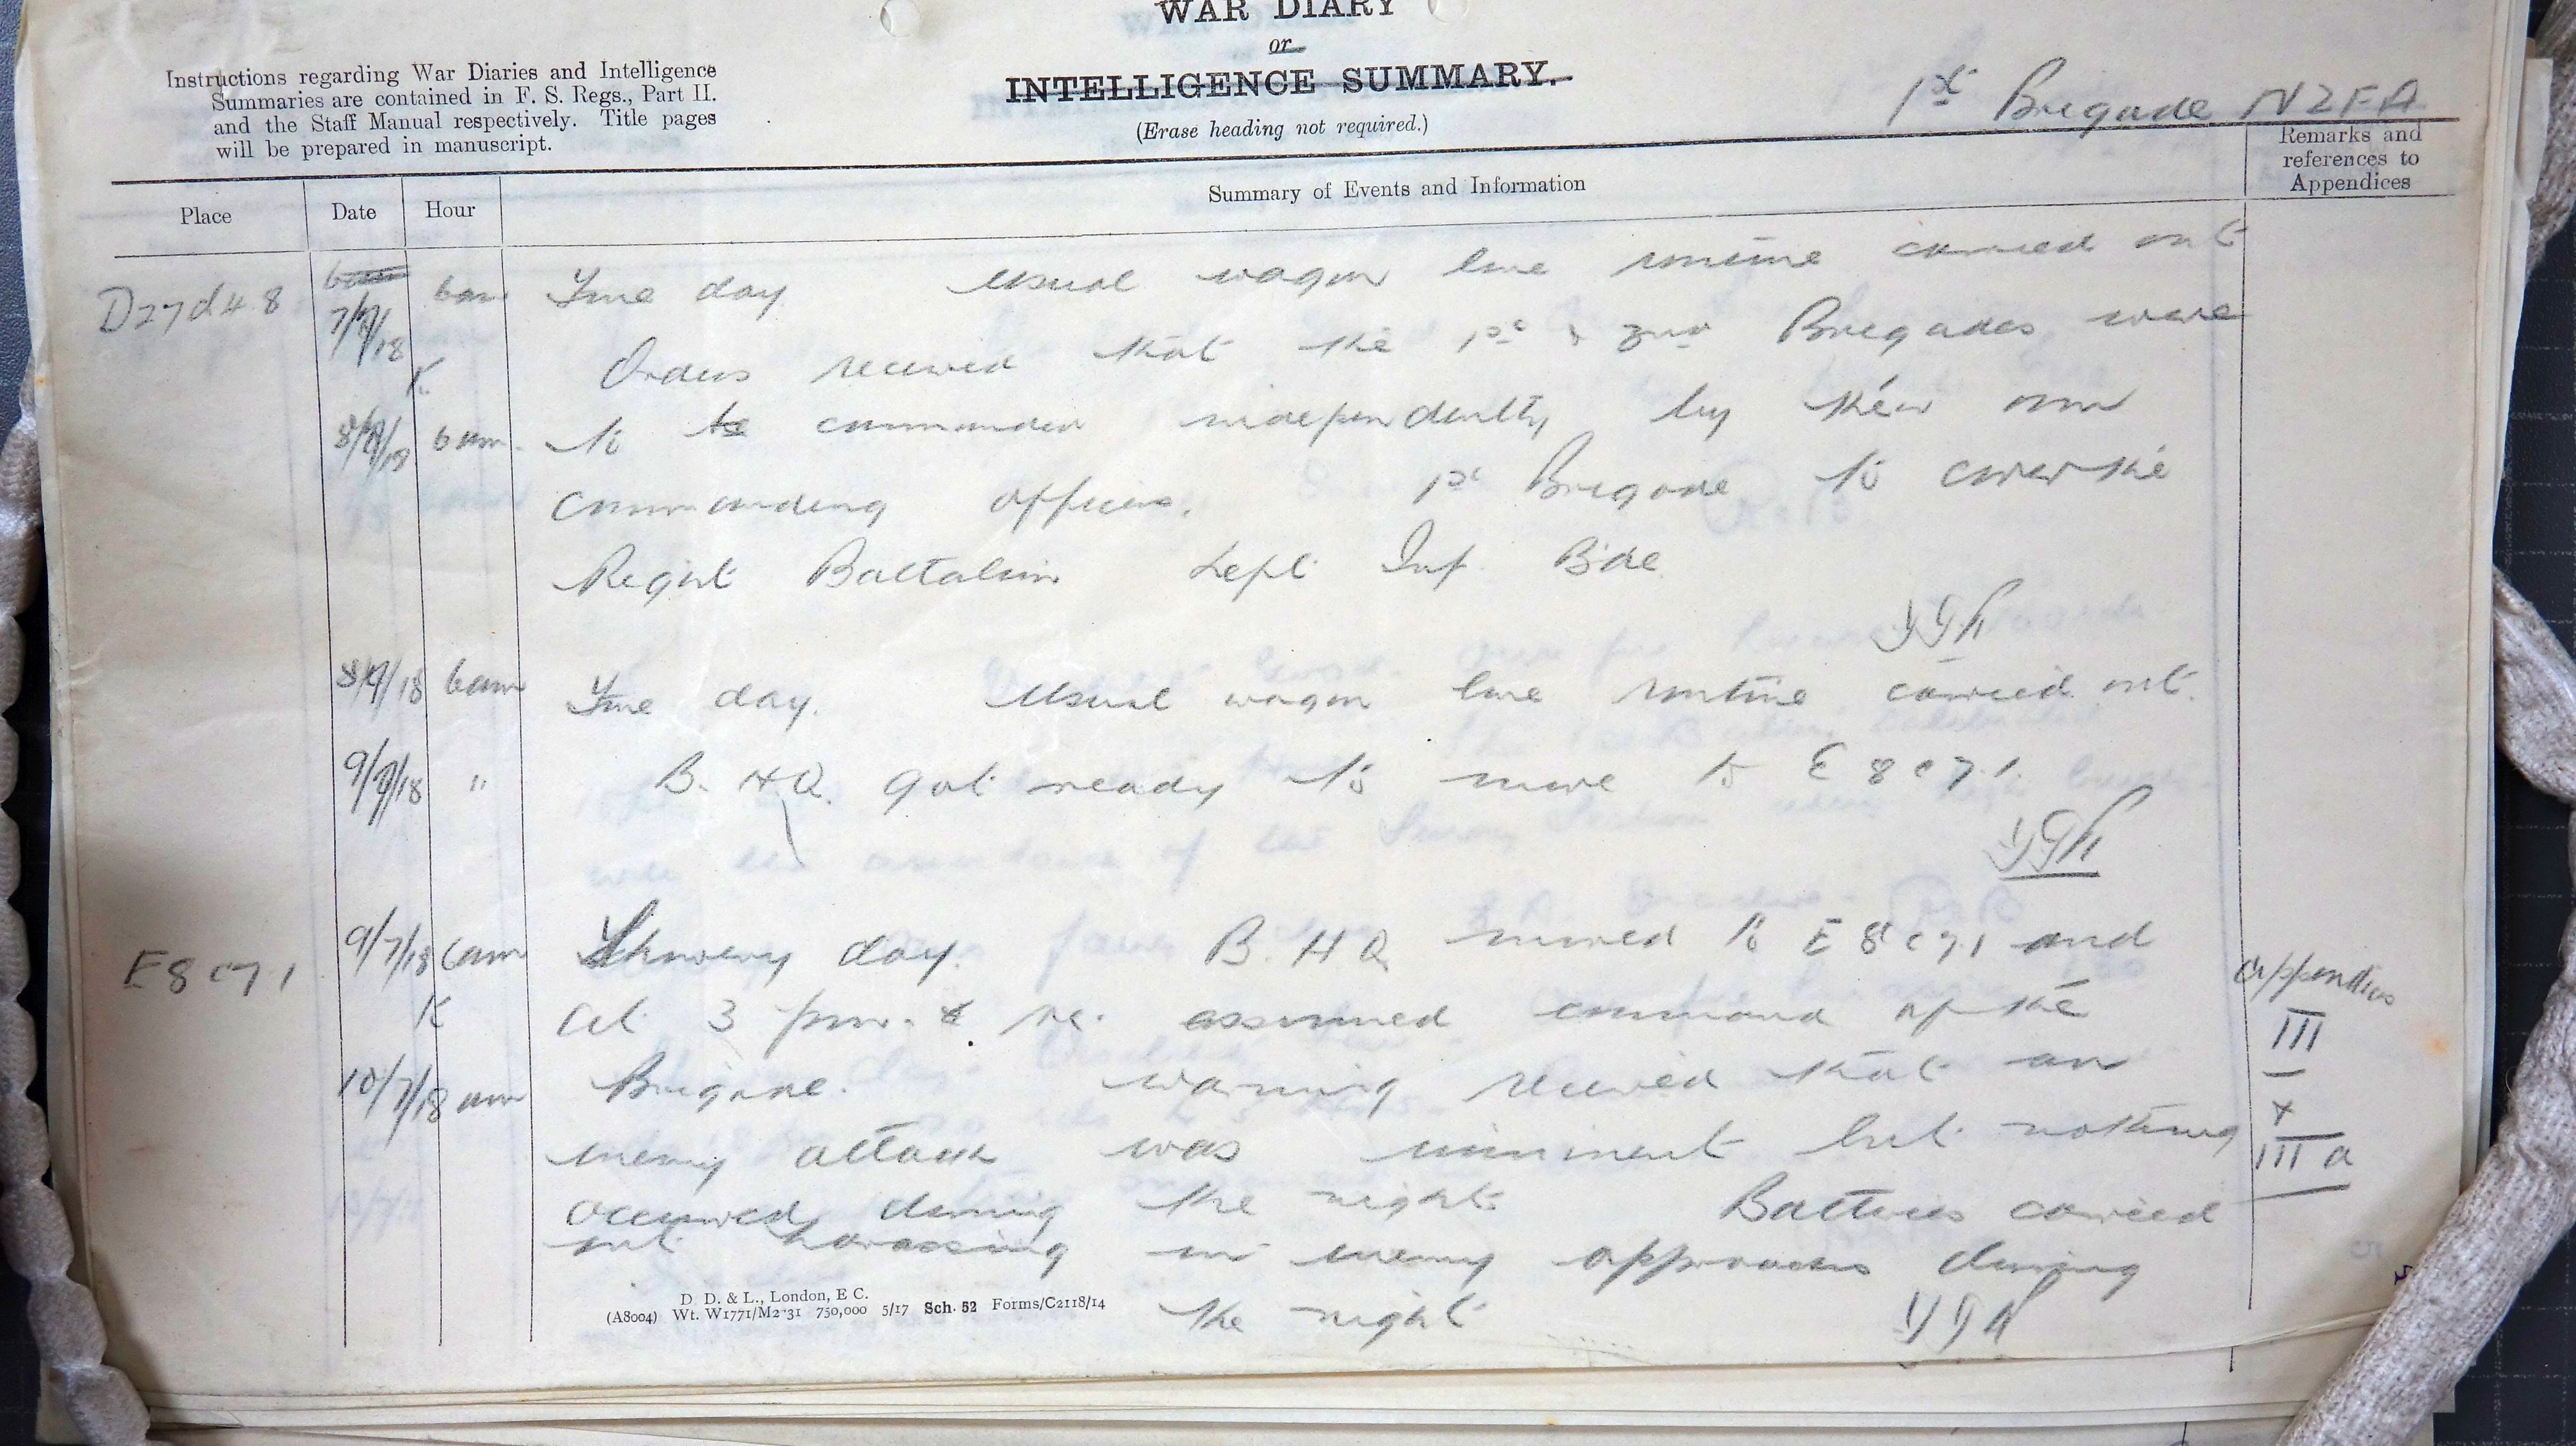 WAR DIARY
or
INTELLIGENCE SUMMARY.
(Erase heading not required.)
Instructions regarding War Diaries and Intelligence
Summaries are contained in F. S. Regs., Part II.
and the Staff Manual respectively. Title pages
will be prepared in manuscript.
1st Brigade NZFA
Place Date Hour Summary of Events and Information Remarks and references to Appendices
D27d4.8 7/7/18 6am Fine day Usual wagon line routine carried out
Orders received that the 1st & 3rd Brigades were
8/7/18 6am. to be commanded independently by their own
commanding officers. 1st Brigade to cover the
Right Battalion Left Inf. Bde
8/7/18 6am Fine day. Usual wagon line routine carried out.
9/7/18 " B. H.Q. got ready to move to E8c7.1.
E8c7.1 9/7/18 6am Showery day. B. H Q moved to E8c7.1 and
at 3 pm. assumed command of the
10/7/18 am Brigade. Warning received that an
enemy attack was imminent but nothing
occurred during the night Batteries carried
out harassing on enemy approaches during
the night
Appendices
III
+
III a
D. D. & L., London, E C.
(A8004) Wt. W1771/M2131 750,000 5/17 Sch. 52 Forms/C2118/14